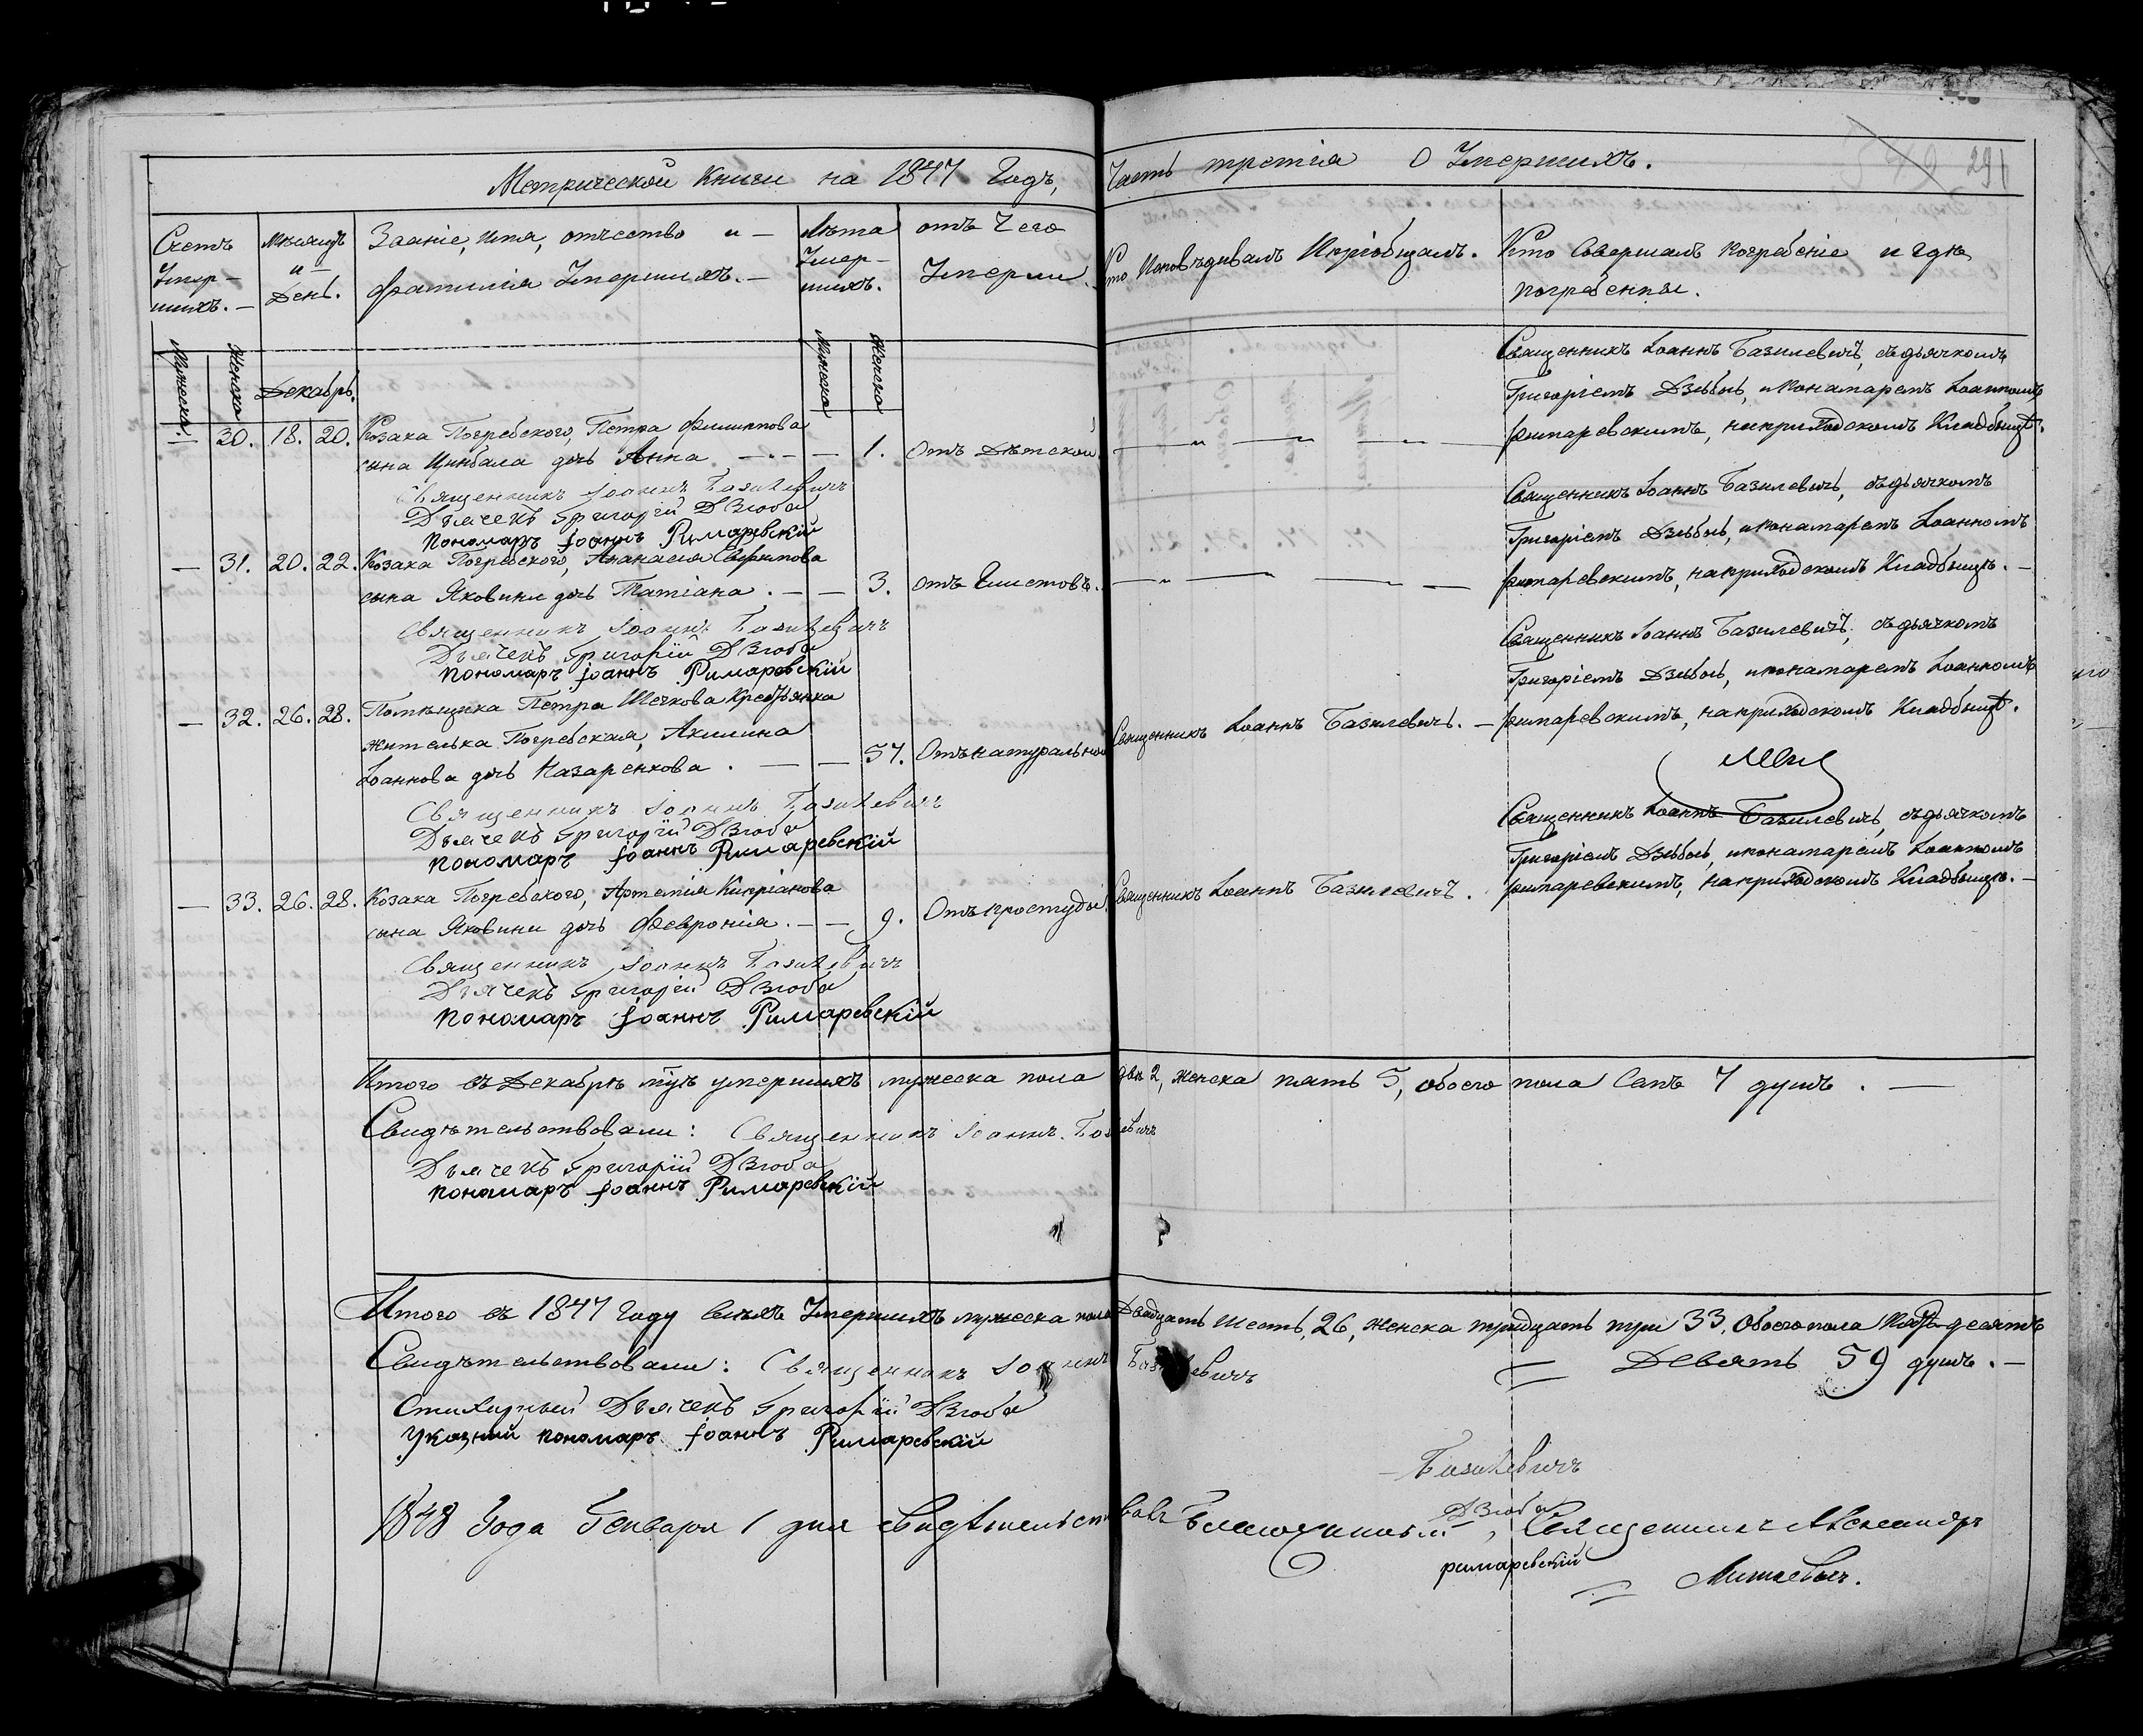 Метрической Книги на 1847 Годъ,
Часть третія О Умершихъ.
291
Счетъ Умер-шихъ.
Мѣсяцъ и День.
Званіе, имя, отчество и фамилія Умершихъ.
Лѣта Умер-шихъ.
отъ Чего Умерли.
Кто Исповѣдывалъ Ипріобщалъ.
Кто Совершалъ погребеніе и гдѣ погребенны.
Мужеска.
Женска
Декабрь.
Мужеска
Женска
— 30. 18. 20. Козака Погребского, Петра Филиппова
сына Цимбала дочь Анна — 1. Отъ Дѣтской.
Священникъ Іоаннъ Базилевичъ, съдьячкомъ
Григоріемъ Дзюбою, ипонамаремъ Іоанномъ
Римаревскимъ, наприходскомъ Кладбищѣ.
Священникъ Іоаннъ Базилевичъ
Дьячекъ Григорій Дзюба
пономаръ Іоаннъ Римаревскій
— 31. 20. 22. Козака Погребского, Афанасія
сына Яковини дочь Татіана. — 3. отъ Глистовъ.
Священникъ Іоаннъ Базилевичъ, съдьячкомъ
Григоріемъ Дзюбою, ипонамаремъ Іоанномъ
Римаревскимъ, наприходскомъ Кладбищѣ. —
Священникъ Іоаннъ Базилевичъ
Дьячекъ Григорій Дзюба
пономаръ Іоаннъ Римаревскій
— 32. 26. 28. Помѣщика Петра Шечкова Крестьянка
жителька Погребская, Акилина
Іоаннова дочь Назаренкова. — 57. Отънатуральной
Священникъ Іоаннъ Базилевичъ. —
Священникъ Іоаннъ Базилевичъ, съдьячкомъ
Григоріемъ Дзюбою, ипонамаремъ Іоанномъ
Римаревскимъ, наприходскомъ Кладбищѣ.
Священникъ Іоаннъ Базилевичъ
Дьячекъ Григорій Дзюба
пономаръ Іоаннъ Римаревскій
— 33. 26. 28. Козака Погребского, Артемія Кипріанова
сына Яковини дочь Февронія. — 9. Отъпростуды.
Священникъ Іоаннъ Базилевичъ.
Священникъ Іоаннъ Базилевичъ, съдьячкомъ
Григоріемъ Дзюбою, ипонамаремъ Іоанномъ
Римаревскимъ, наприходскомъ Кладбищѣ. —
Священникъ Іоаннъ Базилевичъ
Дьячекъ Григорій Дзюба
пономаръ Іоаннъ Римаревскій
Итого въ Декабрѣ умершихъ мужеска пола два 2, женска пять 5, обоего пола Семъ 7 душъ. —
Свидѣтельствовали: Священникъ Іоаннъ Базилевичъ
Дьячекъ Григорій Дзюба
пономаръ Іоаннъ Римаревскій
Итого въ 1847 Году всѣхъ Умершихъ мужеска пола Двадцать шесть, 26, женска тридцать три 33, Обоегопола Пятъдесятъ
Девять 59 душъ. —
Свидѣтельствовали: Священникъ Іоаннъ Базилевичъ
Стихарный Дьячекъ Григорій Дзюба
Указний пономаръ Іоаннъ Римаревскій
Базилевичъ
Дзюба
римаревскій
1848 Года Генваря 1 дня Свидѣтельствовалъ Благочинный, Священникъ Александръ